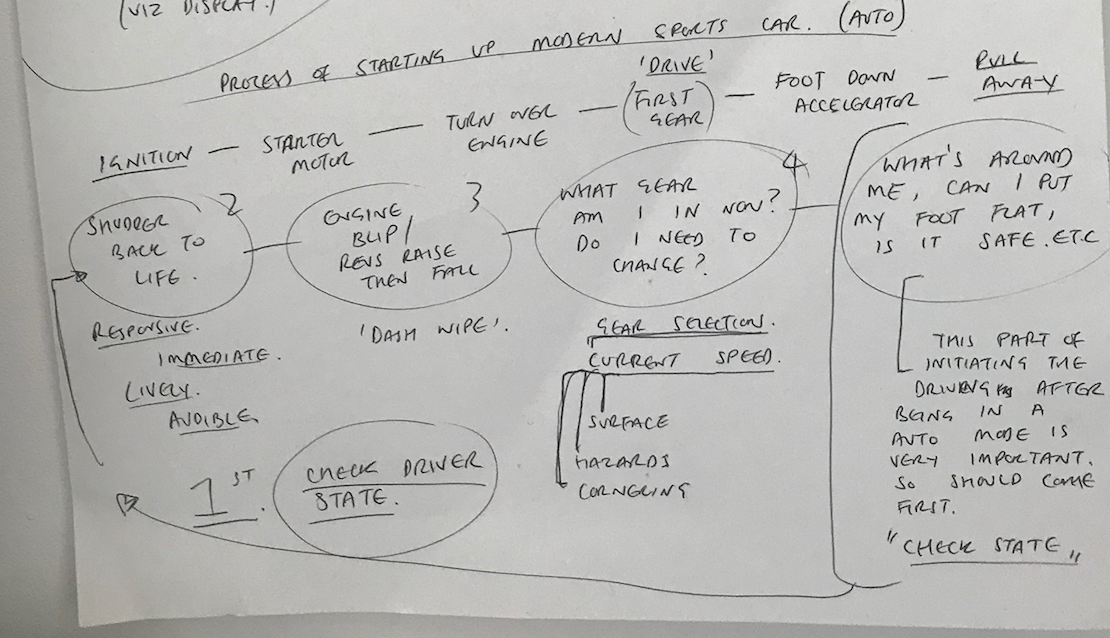 (VIZ DISPLAY.)
PROCESS OF STARTING UP MODERN SPORTS CAR. (AUTO)
IGNITION — STARTER MOTOR — TURN OVER ENGINE — 'DRIVE' (FIRST GEAR) — FOOT DOWN ACCELERATOR — PULL AWAY
SHUDDER
BACK TO
LIFE.
2
RESPONSIVE.
IMMEDIATE.
LIVELY.
AUDIBLE
ENGINE
BLIP/
REVS RAISE
THEN FALL
3
'DASH WIPE'.
WHAT GEAR
AM I IN NOW?
DO I NEED TO
CHANGE?
4
GEAR SELECTION.
CURRENT SPEED.
SURFACE
HAZARDS
CORNERING
WHAT'S AROUND
ME, CAN I PUT
MY FOOT FLAT,
IS IT SAFE. ETC
THIS PART OF
INITIATING THE
DRIVING AFTER
BEING IN A
AUTO MODE IS
VERY IMPORTANT.
SO SHOULD COME
FIRST.
"CHECK STATE"
1ST.
CHECK DRIVER
STATE.